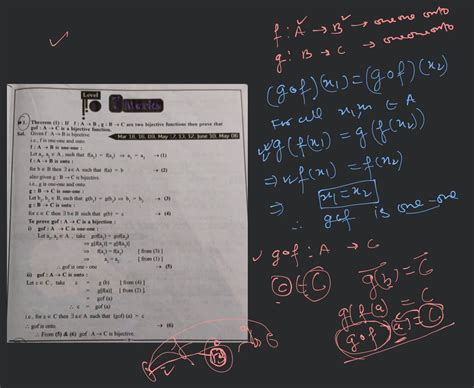 Level
1
7 Marks
1. Theorem (1) : If f : A → B, g : B → C are two bijective functions then prove that
gof : A → C is a bijective function.
Mar 18, 16, 09, May -7, 13, 12, June 10, May 06
Sol. Given f : A → B is bijective.
i.e., f is one-one and onto.
f : A → B is one-one :
Let a₁, a₂ ∈ A, such that f(a₁) = f(a₂) ⇒ a₁ = a₂ → (1)
f : A → B is onto :
for b ∈ B then ∃ a∈A such that f(a) = b → (2)
also given g : B → C is bijective.
i.e., g is one-one and onto.
g : B → C is one-one :
Let b₁, b₂ ∈ B, such that g(b₁) = g(b₂) ⇒ b₁ = b₂ → (3)
g : B → C is onto :
for c ∈ C then ∃ b∈B such that g(b) = c → (4)
To prove gof : A → C is a bijection :
i) gof : A → C is one-one :
Let a₁, a₂ ∈ A, take gof(a₁) = gof(a₂)
⇒ g[f(a₁)] = g[f(a₂)]
⇒ f(a₁) = f(a₂) [ from (3) ]
⇒ a₁ = a₂ [ from (1) ]
∴ gof is one - one → (5)
ii) gof : A → C is onto :
Let c ∈ C, take c = g (b) [ from (4) ]
= g[f(a)] [ from (2) ],
= gof(a)
∴ c = gof (a)
i.e., for c ∈ C then ∃ a∈A such that (gof) (a) = c
∴ gof is onto → (6)
∴ From (5) & (6) gof : A → C is bijective.
f : A → B → one one onto
g : B → C → one one onto
(gof)(x₁) = (gof)(x₂)
For all x₁, x₂ ∈ A
g(f(x₁)) = g(f(x₂))
⇒ f(x₁) = f(x₂)
⇒ x₁ = x₂
∴ gof is one-one
gof : A → C
c ∈ C g(b) = C
g(f(a)) = C
gof (a) = C